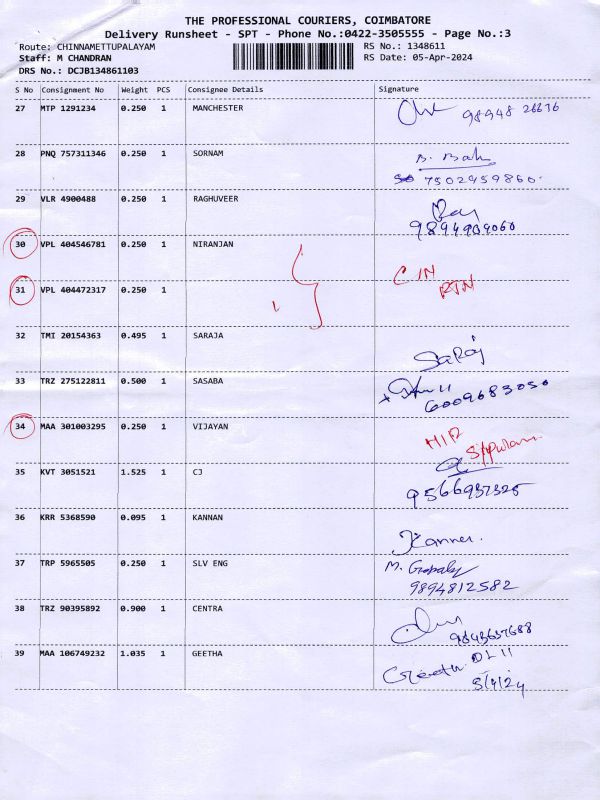 THE PROFESSIONAL COURIERS, COIMBATORE
Delivery Runsheet - SPT - Phone No.:0422-3505555 - Page No.:3
Route: CHINNAMETTUPALAYAM RS No.: 1348611
Staff: M CHANDRAN RS Date: 05-Apr-2024
DRS No.: DCJB134861103
S No Consignment No Weight PCS Consignee Details Signature
27 MTP 1291234 0.250 1 MANCHESTER
98948 26636
28 PNQ 757311346 0.250 1 SORNAM B. Babu
7502959860.
29 VLR 4900488 0.250 1 RAGHUVEER
9894909060
30 VPL 404546781 0.250 1 NIRANJAN
CIN
RTN
31 VPL 404472317 0.250 1
32 TMI 20154363 0.495 1 SARAJA
Saroj
33 TRZ 275122811 0.500 1 SASABA
6009683050
34 MAA 301003295 0.250 1 VIJAYAN
35 KVT 3051521 1.525 1 CJ
9566937325
36 KRR 5368590 0.095 1 KANNAN
Kannan.
37 TRP 5965505 0.250 1 SLV ENG M. Gopal
9894812582
38 TRZ 90395892 0.900 1 CENTRA
9843637688
39 MAA 106749232 1.035 1 GEETHA Geetha DL 11
5/4/24